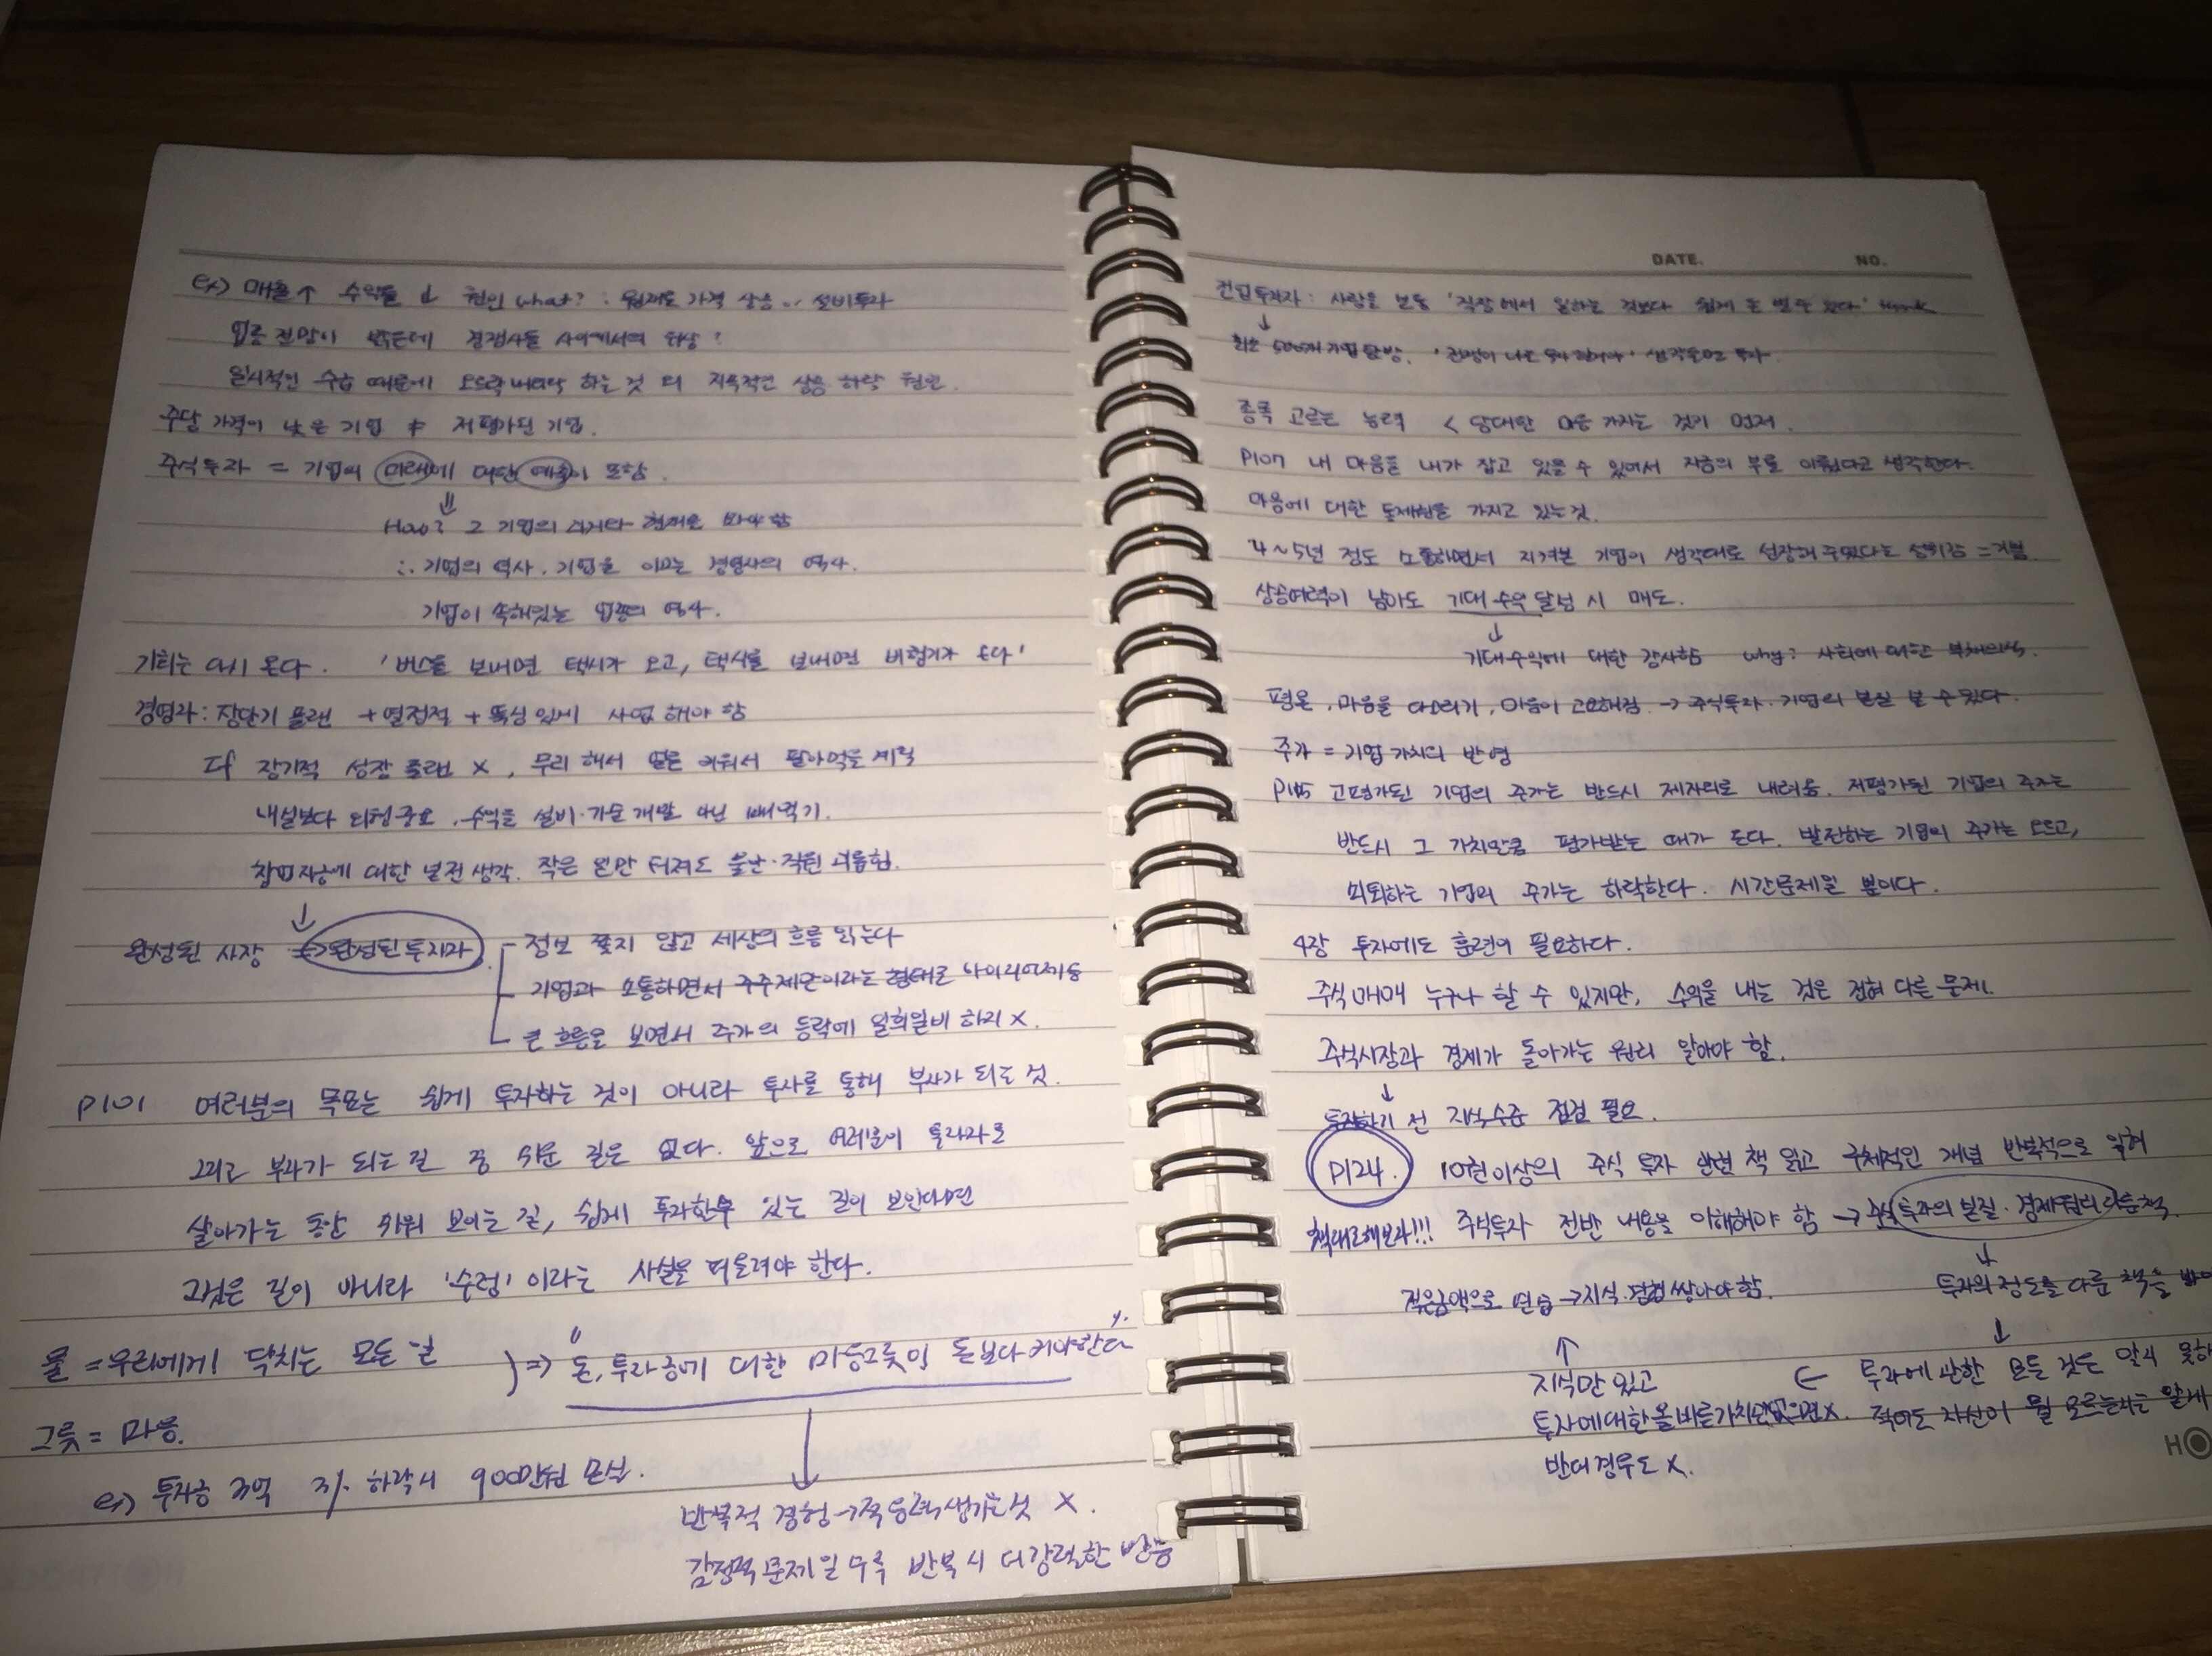 ex) 매출↑ 수익률↓ 원인 what? : 원재료 가격 상승 or 설비투자
업종 전망이 밝은데 경쟁사들 사이에서의 위상?
일시적인 수급 때문에 오르락내리락 하는 것 외 지속적인 상승 하락 원인.
주당 가격이 낮은 기업 ≠ 저평가된 기업.
주식투자 = 기업의 미래에 대한 예측이 포함.
⇓
How? 그 기업의 과거와 현재를 봐야 함
∴ 기업의 역사. 기업을 이끄는 경영자의 역사.
기업이 속해있는 업종의 역사.
기회는 다시 온다. '버스를 보내면 택시가 오고, 택시를 보내면 비행기가 온다'
경영자: 장단기 플랜 + 열정적 + 뚝심 있게 사업 해야 함
If 장기적 성장 플랜 X, 무리 해서 얼른 키워서 팔아먹을 계획
내실보다 외형 중요, 수익을 설비·기술 개발 아닌 빼먹기.
창업자금에 대한 본전 생각. 작은 일만 터져도 불난·직원 괴롭힘.
↓
완성된 사장 ⇔ 완성된 투자자
정보 쫓지 않고 세상의 흐름 읽는다
기업과 소통하면서 주주제안이라는 형태로 아이디어제공
큰 흐름을 보면서 주가의 등락에 일희일비 하지 X.
P101 여러분의 목표는 쉽게 투자하는 것이 아니라 투자를 통해 부자가 되는 것.
그리고 부자가 되는 길 중 쉬운 길은 없다. 앞으로 여러분이 투자자로
살아가는 동안 쉬워 보이는 길, 쉽게 투자할 수 있는 길이 보인다면
그것은 길이 아니라 '수렁' 이라는 사실을 떠올려야 한다.
물 = 우리에게 닥치는 모든 일
그릇 = 마음.
) ⇒ "돈, 투자금에 대한 마음그릇이 돈보다 커야한다"
ex) 투자금 3억 3% 하락시 900만원 손실.
↓
반복적 경험 → 적응력 생기는 것 X.
감정적 문제일수록 반복시 더 강력한 반응
DATE. NO.
전업투자자: 사람들 보통 '직장에서 일하는 것보다 쉽게 돈 벌 수 있다' think
↓
최소 500개 기업 탐방. 생각들면 투자.
종목 고르는 능력 < 담대한 마음 가지는 것이 먼저.
P107 내 마음을 내가 잡고 있을 수 있어서 지금의 부를 이뤘다고 생각한다.
마음에 대한 통제권을 가지고 있는 것.
4~5년 정도 소통하면서 지켜본 기업이 생각대로 성장해 주었다는 성취감 = 기쁨.
상승여력이 남아도 기대 수익 달성 시 매도.
↓
기대수익에 대한 감사함 why? 사회에 대한 부채의식.
평온, 마음을 다스리기, 마음이 고요해짐 → 주식투자·기업의 본질 볼 수 있다.
주가 = 기업 가치의 반영
P115 고평가된 기업의 주가는 반드시 제자리로 내려옴. 저평가된 기업의 주가는
반드시 그 가치만큼 평가받는 때가 온다. 발전하는 기업의 주가는 오르고,
퇴퇴하는 기업의 주가는 하락한다. 시간문제일 뿐이다.
4장 투자에도 훈련이 필요하다.
주식 매매 누구나 할 수 있지만, 수익을 내는 것은 전혀 다른 문제.
주식시장과 경제가 돌아가는 원리 알아야 함.
↓
투자하기 전 지식수준 점검 필요.
P124. 10권이상의 주식 투자 관련 책 읽고 구체적인 개념 반복적으로 익혀
책대로해보자!!! 주식투자 전반 내용을 이해해야 함 → 주식투자의 본질·경제원리 다룬책.
↓
적은금액으로 연습 → 지식·경험 쌓아야 함.
투자의 정도를 다룬 책을
↑
↓
지식만 있고
투자에 대한 올바른 가치관없으면 X.
반대 경우도 X.
⋲ 투자에 관한 모든 것은 알지 못하
적어도 자신이 뭘 모르는지는 알게